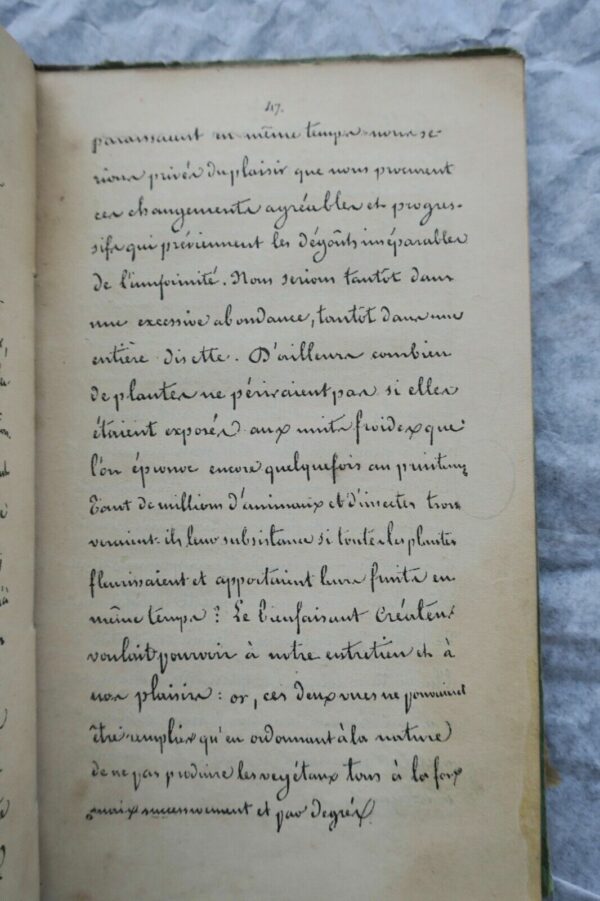 47.
paraissaient en même temps nous se-
rions privés du plaisir que nous procurent
ces changements agréables et progres-
sifs qui préviennent les dégoûts inséparables
de l'uniformité. Nous serions tantôt dans
une excessive abondance, tantôt dans une
entière disette. D'ailleurs combien
de plantes ne périraient pas si elles
étaient exposés aux nuits froides que
l'on éprouve encore quelquefois au printemps
Tant de millions d'animaux et d'insectes trou
veraient-ils leur subsistance si toutes les plantes
fleurissaient et apportaient leurs fruits en
même temps? Le bienfaisant Créateur
voulait pourvoir à notre entretien et à
nos plaisirs: or, ces deux vues ne pouvaient
être remplies qu'en ordonnant à la nature
de ne pas produire les végétaux tous à la fois
mais successivement et par degrés